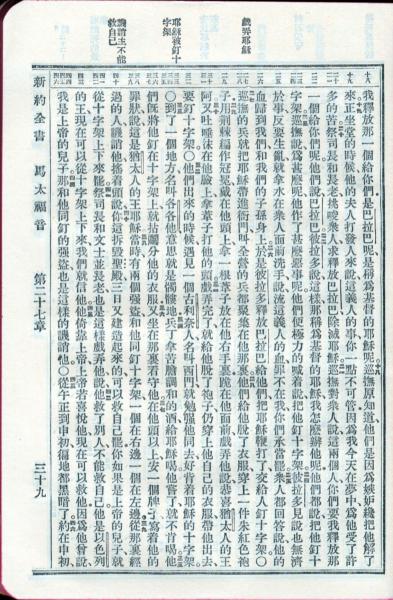 戲弄耶穌
耶穌被釘十
字架
譏誚主不能
救自己
我釋放那一個給你們是巴拉巴呢是稱爲基督的耶穌呢巡撫原知道他們是因爲嫉妒纔把他解了
來正坐堂的時候他的夫人打發人來說這義人的事你一點不可管因爲我今天在夢中爲他受了許
多的苦祭司長和長老挑唆衆人求釋放巴拉巴除滅耶穌巡撫對衆人說這兩個人你們要我釋放那
一個給你們呢他們說巴拉巴彼拉多說這樣那稱爲基督的耶穌我怎麽辦他呢他們都說把他釘十
字架巡撫說爲甚麽呢他作了甚麽惡事呢他們便極力的喊着說把他釘十字架彼拉多見說也無濟
於事反要生亂就拿水在衆人面前洗手說流這義人的血罪不在我你們承當罷衆人都回答說他的
血歸到我們和我們的子孫身上於是彼拉多釋放巴拉巴給他們把耶穌鞭打了交給人釘十字架〇
巡撫的兵就把耶穌帶進衙門叫全營的兵都聚集在他那裏他們給他脫了衣服穿上一件朱紅色袍
子用荆棘編作冠冕戴在他頭上拿一根葦子放在他右手裏跪在他面前戲弄他說恭喜猶太人的王
阿又吐唾沫在他臉上拿葦子打他的頭戲弄完了就給他脫了袍子仍穿上他自己的衣服帶他出去
要釘十字架〇他們出來的時候遇見一個古利奈人名叫西門就勉强他同去好背着耶穌的十字架
〇到了一個地方名叫各各他意思就是髑髏地兵丁拿苦膽調和的酒給耶穌喝他嘗了就不肯喝他
們旣將他釘在十字架上就拈鬮分他的衣服又坐在那裏看守他在他頭以上安一個牌子寫着他的
罪狀說這是猶太人的王耶穌當時有兩個强盜和他同釘十字架一個在右邊一個在左邊從那裏經
過的人譏誚他搖着頭說你這拆毁聖殿三日又建造起來的可以救自己罷你如果是上帝的兒子就
從十字架上下來罷祭司長和文士並長老也是這樣戲弄他說他救了别人不能救自己他是以色列
的王現在可以從十字架上下來我們就信他他倚靠上帝上帝若喜悅他現在可以救他因爲他曾說
我是上帝的兒子那和他同釘的强盜也是這樣的譏誚他〇從午正到申初徧地都黑暗了約在申初
新約全書 馬太福音 第二十七章 三十九